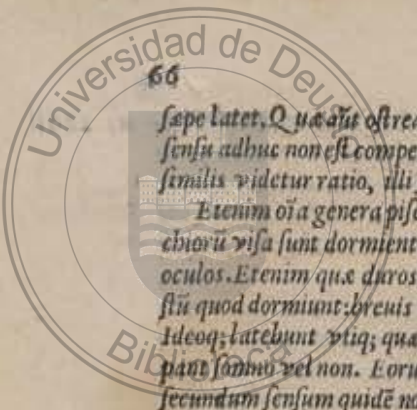 Universidad de Deusto
Biblioteca
66
sæpe latet. Quæ aūt ostrea
sensu adhuc non est compe
similis videtur ratio, illi
Etenim oīa genera pisc
chiorū visa sunt dormient
oculos. Etenim quæ duros
stū quod dormiunt: breuis
Ideoq; latebunt vtiq; quæ
pant somno vel non. Eoru
secundum sensum quidē no